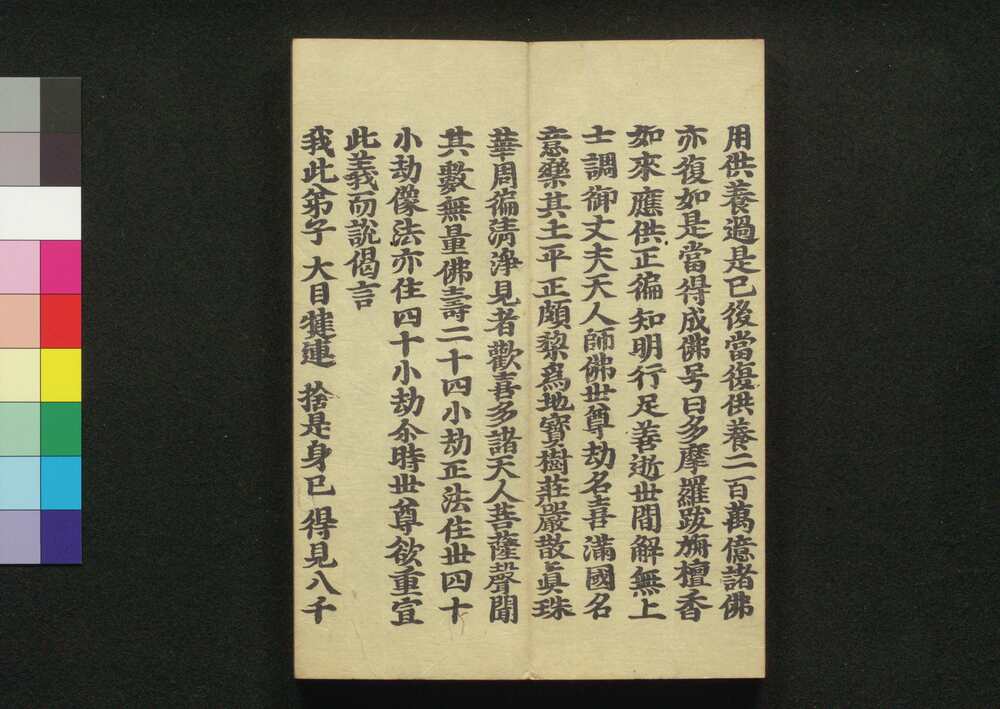 用供養過是已後當復供養二百萬億諸佛
亦復如是當得成佛号曰多摩羅跋旃檀香
如來應供正徧知明行足善逝世間解無上
士調御丈夫天人師佛世尊劫名喜滿國名
意樂其土平正頗黎爲地寶樹莊嚴散真珠
華周徧清淨見者歡喜多諸天人菩薩聲聞
其數無量佛壽二十四小劫正法住世四十
小劫像法亦住四十小劫尒時世尊欲重宣
此義而說偈言
我此弟子 大目犍連 捨是身已 得見八千